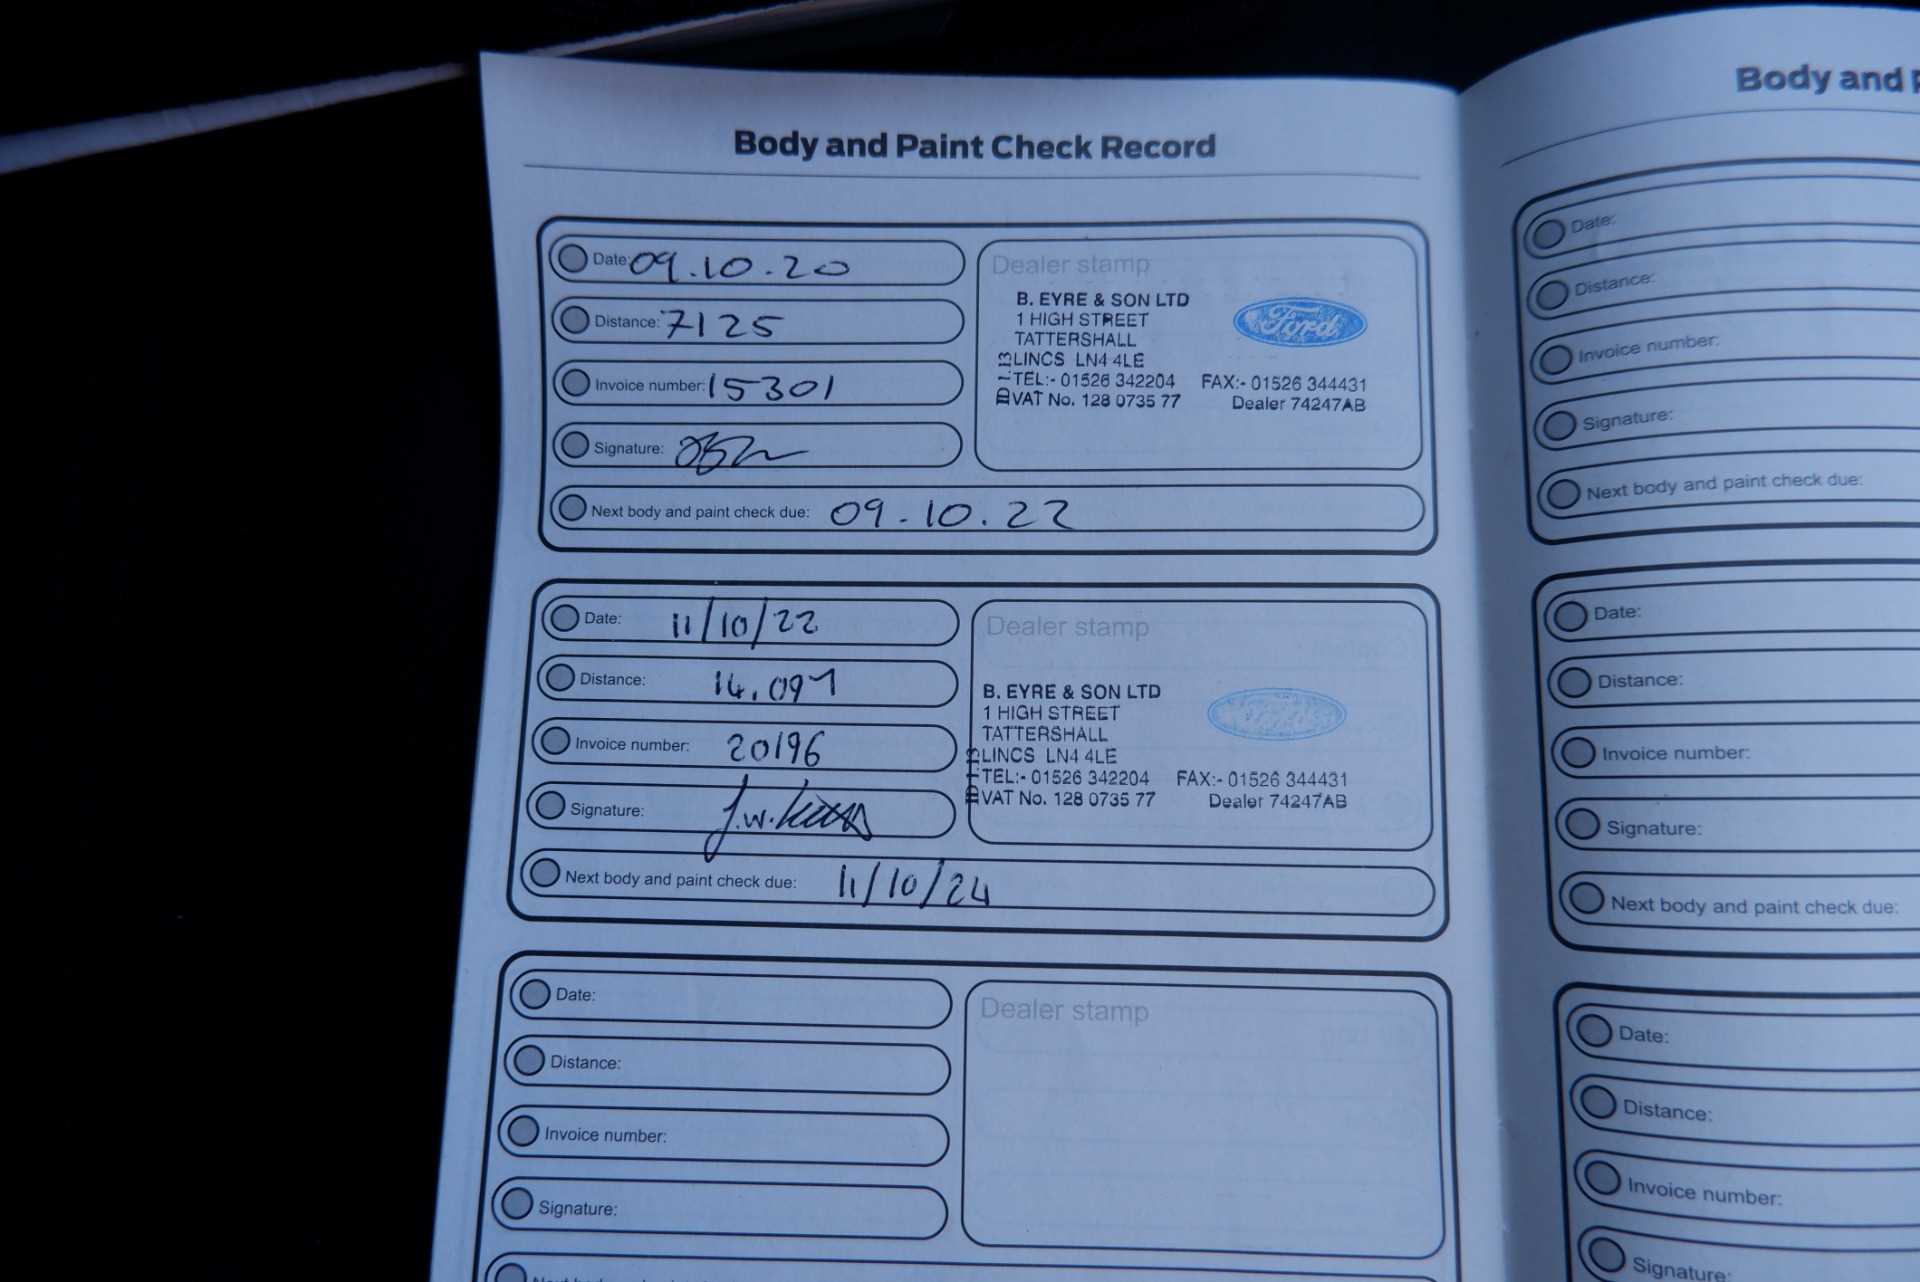 Body and Paint Check Record
Date: 09.10.20
Distance: 7125
Invoice number: 15301
Signature:
Next body and paint check due: 09.10.22
Dealer stamp
B. EYRE & SON LTD
1 HIGH STREET
TATTERSHALL
LINCS LN4 4LE
TEL:- 01526 342204 FAX:- 01526 344431
VAT No. 128 0735 77 Dealer 74247AB
Ford
Date: 11/10/22
Distance: 14.097
Invoice number: 20196
Signature: J.W.
Next body and paint check due: 11/10/24
Dealer stamp
B. EYRE & SON LTD
1 HIGH STREET
TATTERSHALL
LINCS LN4 4LE
TEL:- 01526 342204 FAX:- 01526 344431
VAT No. 128 0735 77 Dealer 74247AB
Date:
Distance:
Invoice number:
Signature:
Dealer stamp
Body and
Date:
Distance:
Invoice number:
Signature:
Next body and paint check due:
Date:
Distance:
Invoice number:
Signature:
Next body and paint check due:
Date:
Distance:
Invoice number:
Signature: